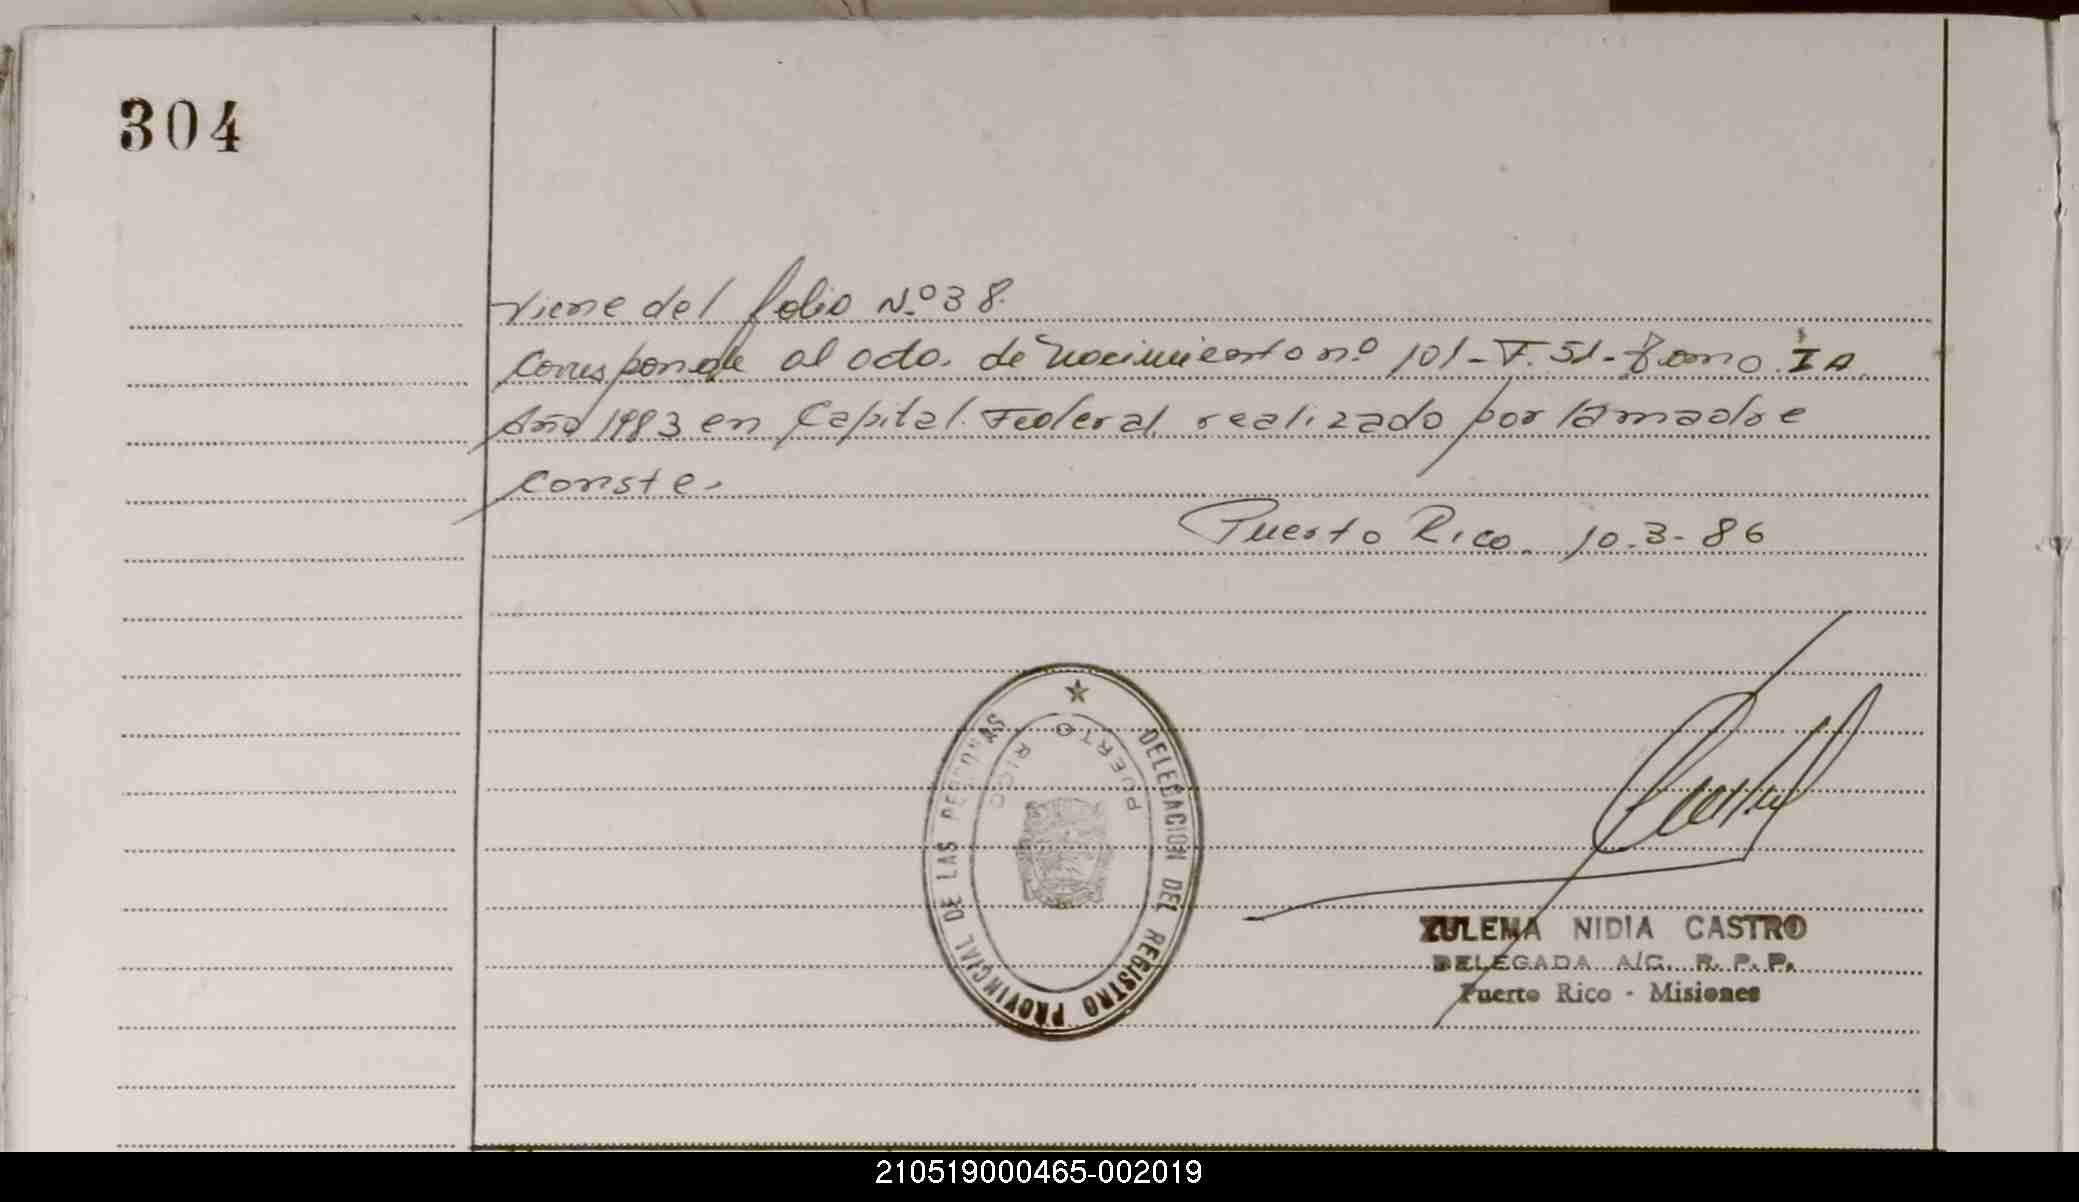 304
Viene del folio Nº 38.
Corresponde al acta. de Nacimiento nº 101-F. 51-Tomo I A
Año 1983 en Capital Federal realizado por la madre
conste.
Puerto Rico. 10.3-86
★ DELEGACION DEL REGISTRO PROVINCIAL DE LAS PERSONAS
PUERTO RICO
ZULEMA NIDIA CASTRO
DELEGADA A/C. R. P. P.
Puerto Rico - Misiones
210519000465-002019